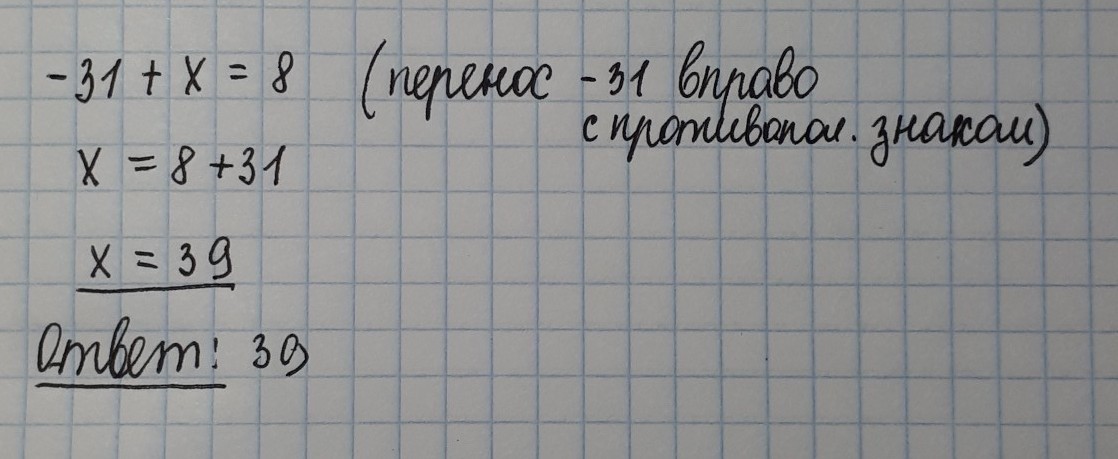 -31 + x = 8 (перенос -31 вправо
с противопол. знаком)
x = 8 + 31
x = 39
Ответ: 39